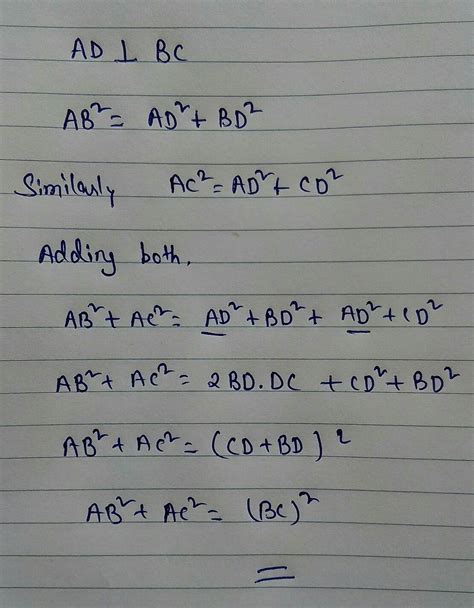 AD ⊥ BC
AB² = AD² + BD²
Similarly AC² = AD² + CD²
Adding both,
AB² + AC² = AD² + BD² + AD² + CD²
AB² + AC² = 2BD.DC + CD² + BD²
AB² + AC² = (CD + BD)²
AB² + AC² = (BC)²